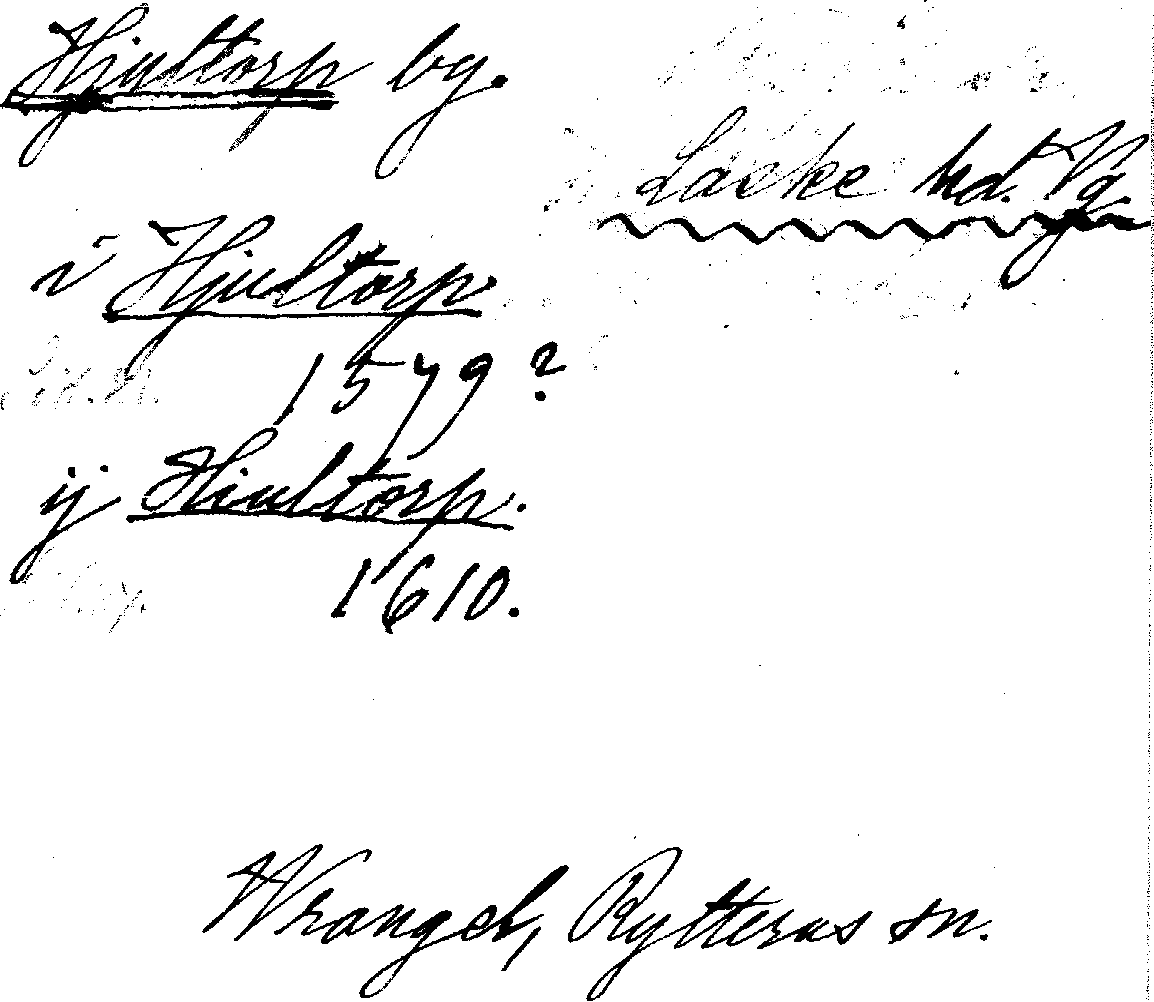 Hjultorp by.
Laske hd. Vg.
i Hjultorp
1579?
ij Hiultorp.
1610.
Wrangel, Rytterns sn.